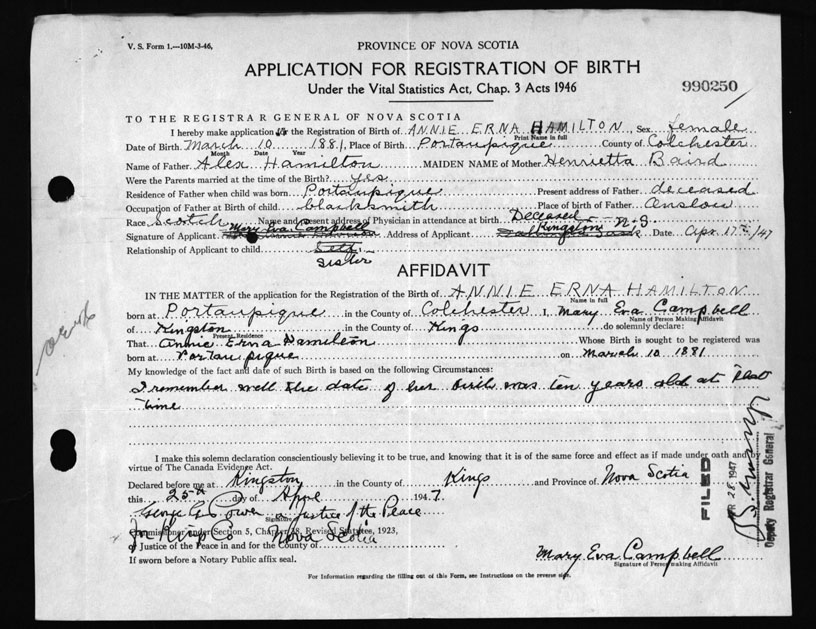 V. S. Form 1.—10M-3-46,
PROVINCE OF NOVA SCOTIA
APPLICATION FOR REGISTRATION OF BIRTH
Under the Vital Statistics Act, Chap. 3 Acts 1946
990250
TO THE REGISTRAR GENERAL OF NOVA SCOTIA
I hereby make application for the Registration of Birth of ANNIE ERNA HAMILTON, Sex female
Print Name in full
Date of Birth March 10 1881, Place of Birth Portaupique County of Colchester
Month Date Year
Name of Father Alex Hamilton MAIDEN NAME of Mother Henrietta Baird
Were the Parents married at the time of the Birth? yes
Residence of Father when child was born Portaupique Present address of Father deceased
Occupation of Father at Birth of child blacksmith Place of birth of Father Onslow
Race Scotch Name and present address of Physician in attendance at birth Deceased
Signature of Applicant Mary Eva Campbell Address of Applicant Kingston N.S. Date Apr 17th/47
Relationship of Applicant to child Self
Sister
AFFIDAVIT
IN THE MATTER of the application for the Registration of the Birth of ANNIE ERNA HAMILTON
Name in full
born at Portaupique in the County of Colchester I, Mary Eva Campbell
Name of Person Making Affidavit
of Kingston in the County of Kings do solemnly declare:
Present Residence
That Annie Erna Hamilton Whose Birth is sought to be registered was
born at Portaupique on March 10 1881
My knowledge of the fact and date of such Birth is based on the following Circumstances:
I remember well the date of her birth was ten years old at that
time
I make this solemn declaration conscientiously believing it to be true, and knowing that it is of the same force and effect as if made under oath and by
virtue of The Canada Evidence Act.
Declared before me at Kingston in the County of Kings and Province of Nova Scotia
this 25th day of April 1947.
George G Power a Justice of the Peace
Signature
Commissioner under Section 5, Chapter 38, Revised Statutes, 1923,
for Kings Co Nova Scotia
or Justice of the Peace in and for the County of
If sworn before a Notary Public affix seal.
Mary Eva Campbell
Signature of Person making Affidavit
For Information regarding the filling out of this Form, see Instructions on the reverse sign.
FILED
APR 28 1947
Deputy Registrar General